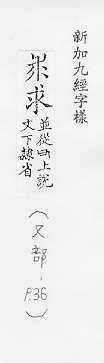 新加九經字樣
求
並從上說
文下隸省
（又部，
P.36）